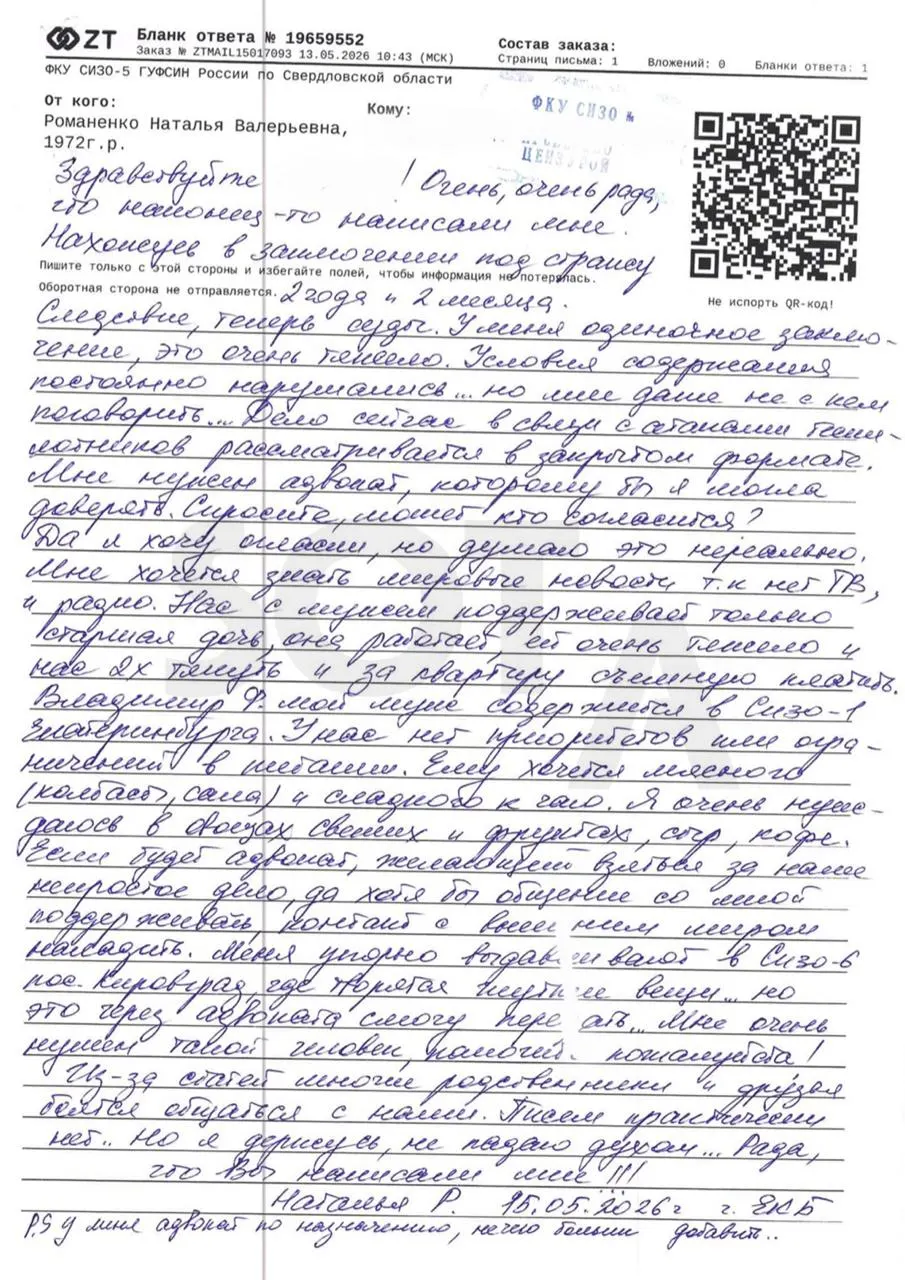 ZT Бланк ответа № 19659552
Заказ № ZTMAIL15017093 13.05.2026 10:43 (МСК)
Состав заказа:
Страниц письма: 1 Вложений: 0 Бланки ответа: 1
ФКУ СИЗО-5 ГУФСИН России по Свердловской области
От кого:
Кому:
Романенко Наталья Валерьевна,
1972г.р.
ФКУ СИЗО №
ЦЕНЗУРОЙ
Здравствуйте ! Очень, очень рада,
что наконец-то написали мне.
Нахожусь в заключении под стражу
Пишите только с этой стороны и избегайте полей, чтобы информация не потерялась.
Оборотная сторона не отправляется. 2 года и 2 месяца.
Не испорть QR-код!
Следствие, теперь суды. У меня одиночное заклю-
чение, это очень тяжело. Условия содержания
постоянно нарушались... но мне даже не с кем
поговорить... Дело сейчас в связи с атаками беспи-
лотников рассматривается в закрытом формате.
Мне нужен адвокат, которому бы я могла
доверять. Спросите, может кто согласится?
Да я хочу огласки, но думаю это нереально.
Мне хочется знать мировые новости т.к нет ТВ,
и радио. Нас с мужем поддерживает только
старшая дочь, она работает, ей очень тяжело и
нас 2х тянуть и за квартиру съемную платить.
Владимир Ф. мой муж содержится в Сизо-1
Екатеринбурга. У нас нет приоритетов или огра-
ничений в питании. Ему хочется мясного
(колбасы, сала) и сладкого к чаю. Я очень нуж-
даюсь в овощах свежих и фруктах, сыр, кофе.
Если будет адвокат, желающий взяться за наше
непростое дело, да хотя бы общение со мной
поддерживать, контакт с внешним миром
наладить. Меня упорно выдавливают в Сизо-6
пос. Кировград, где творятся жуткие вещи... но
это через адвоката смогу передать... Мне очень
нужен такой человек, помогите пожалуйста!
Из-за статей многие родственники и друзья
боятся общаться с нами. Писем практически
нет.. Но я держусь, не падаю духом... Рада,
что Вы написали мне!!!
Наталья Р. 15.05.2026г г. ЕКБ
P.S у меня адвокат по назначению, нечего больше добавить..
SOTA